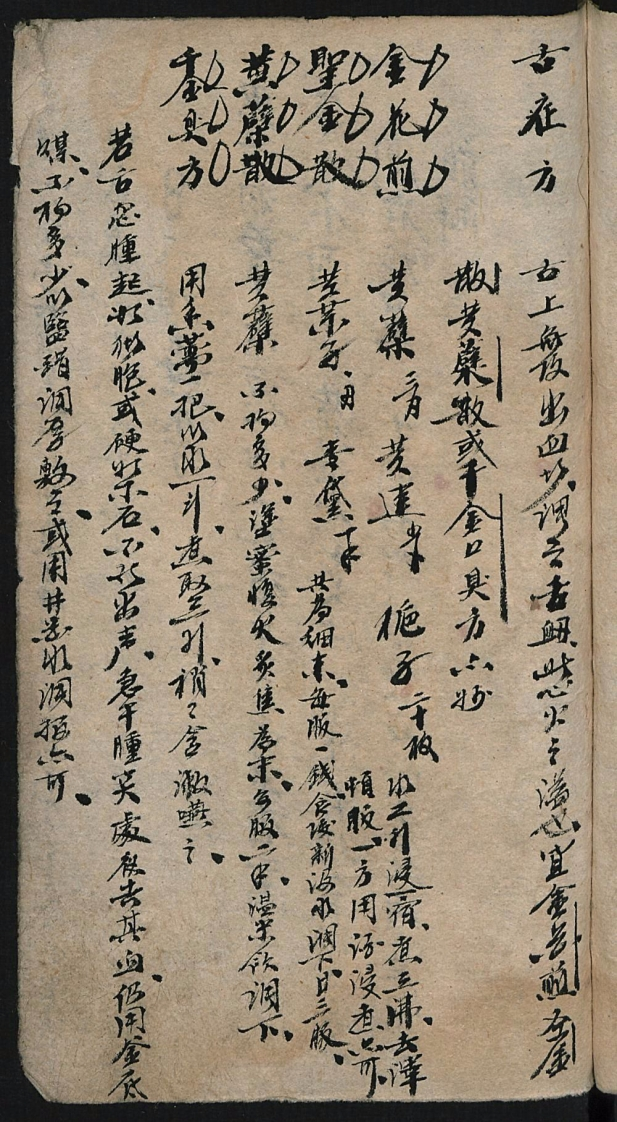 舌症方
舌上無故出血以謂之舌衂此心火之溢也宜金花煎聖金
散黃蘗散或千金口臭方亦妙
金花煎
黃蘗三月 黃連半 梔子二十枚 水二升浸一宿煮三沸去滓
頓服一方用酒浸煮亦可
聖金散
黃藥子 青黛 共為細末每服一錢食後新汲水調下日三服
黃蘗散
黃蘗不拘多少塗蜜慢火炙焦為末每服二 溫米飲調下
千金臭方
用香薷一把以水一斗煮取三升稍稍含漱嚥之
若舌忽腫起狀似胞或硬如木石不能出声急于腫突處 去其血仍用釜底
煤不拘多少以鹽醋調厚敷之或用井花水調搽亦可